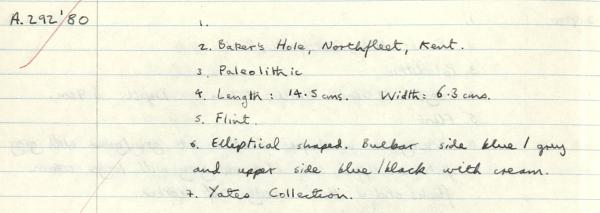 A.292'80
1.
2. Baker's Hole, Northfleet, Kent.
3. Paleolithic
4. Length: 14.5 cms. Width: 6.3 cms.
5. Flint.
6. Elliptical shaped. Bulbar side blue/grey
and upper side blue/black with cream.
7. Yates Collection.